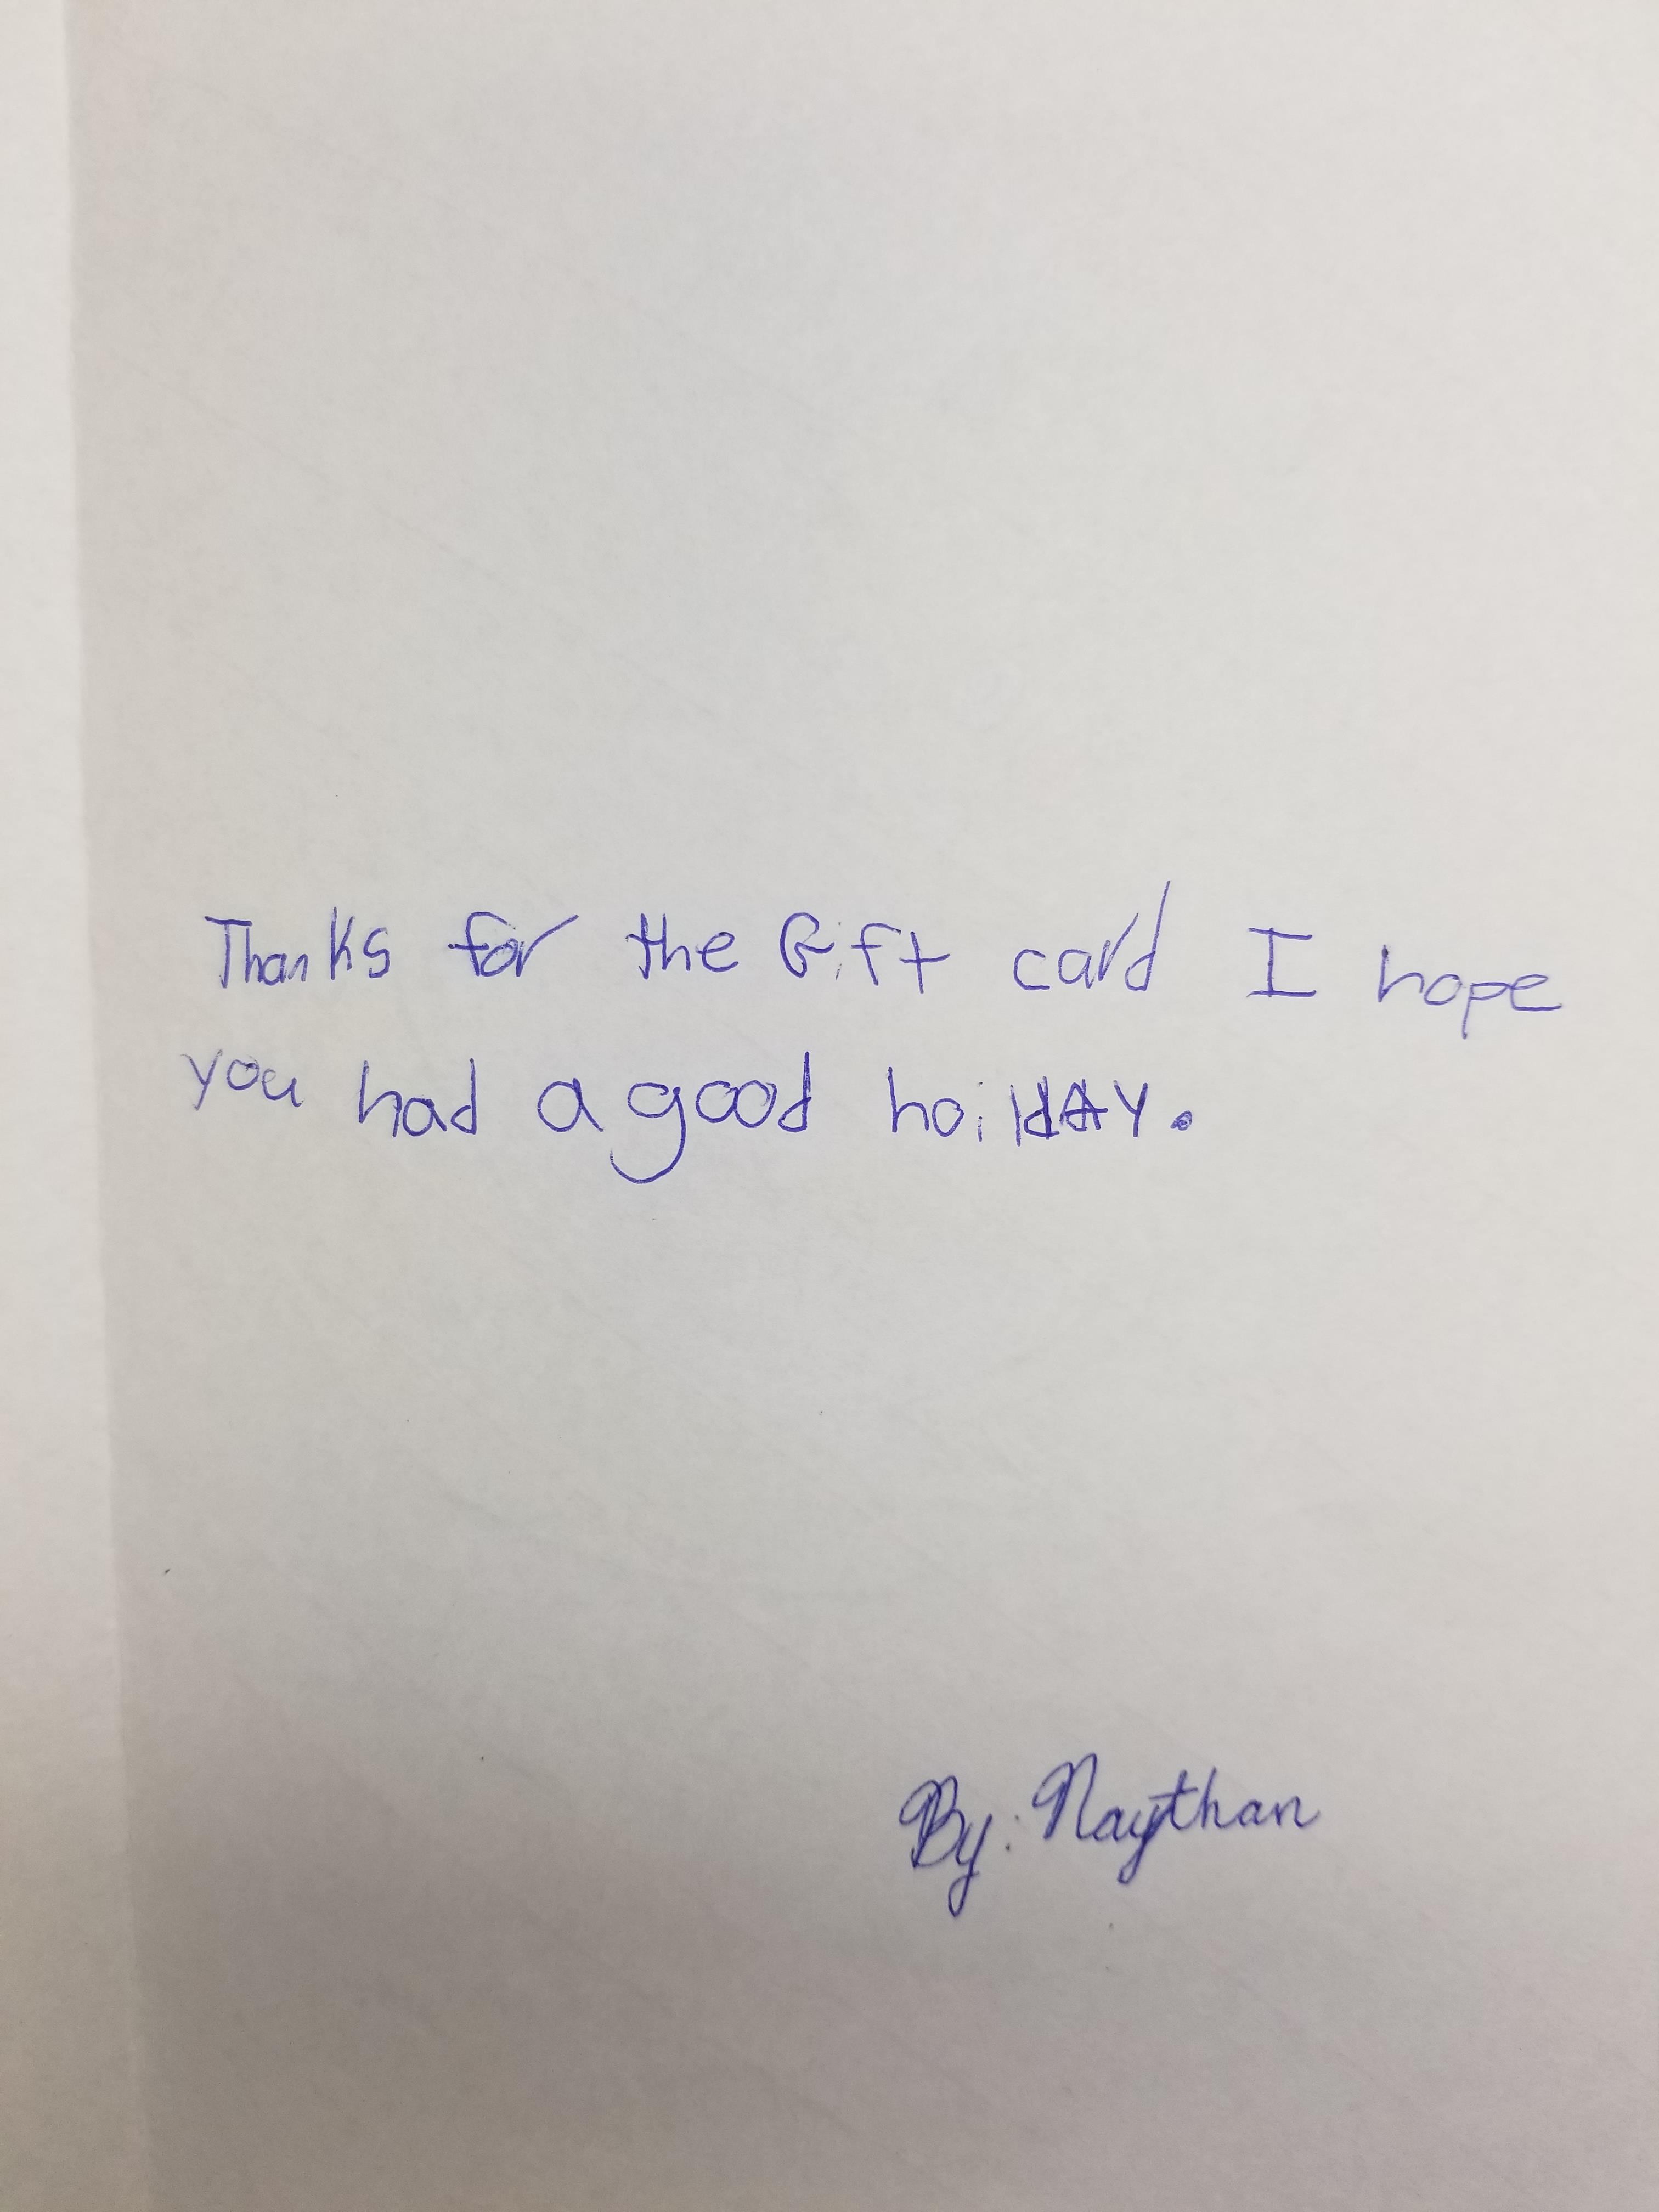 Thanks for the Gift card I hope
you had a good hoilday.
By: Naythan